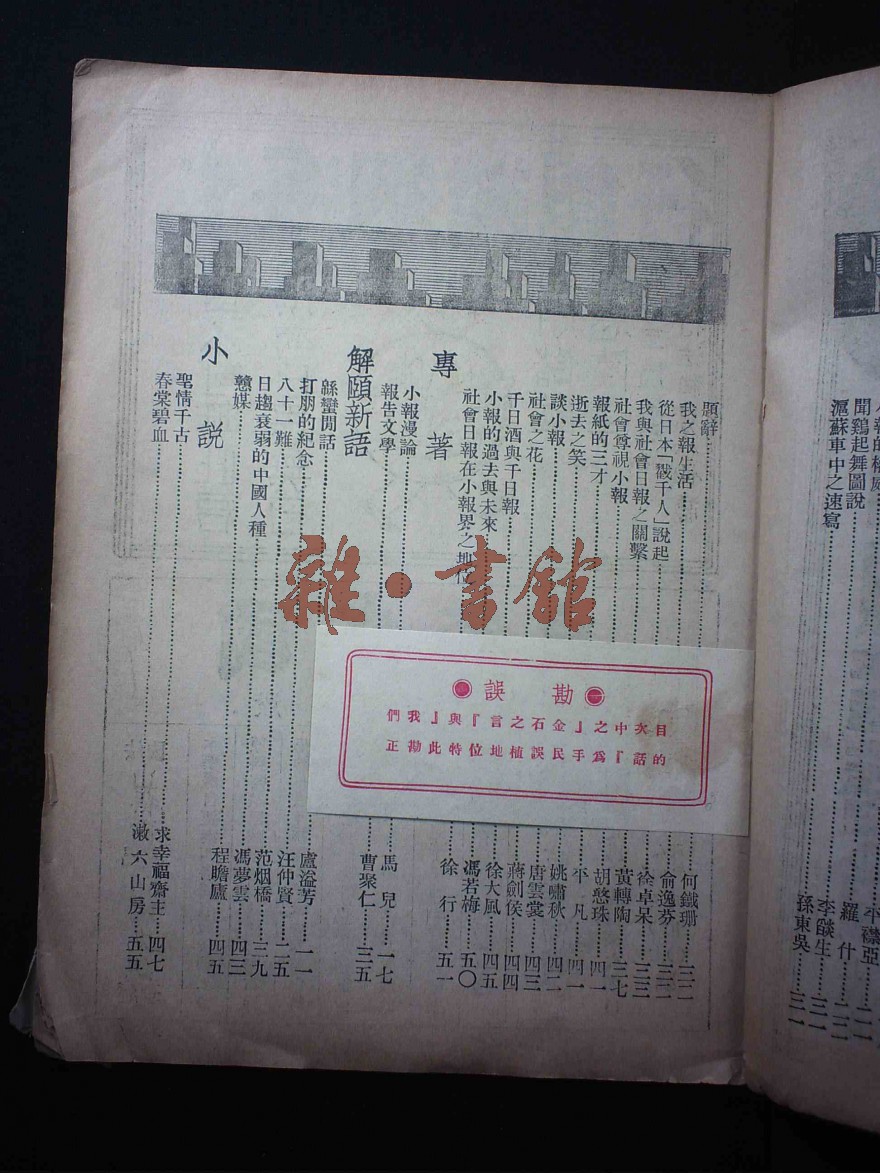 聞鷄起舞圖說
滬蘇車中之速寫
平襟亞
羅什
李燄生
孫東吳
題辭 何鐵珊
我之報生活 俞逸芬 三二
從日本「戳千人」說起 徐卓呆 三三
我與社會日報之關繫 黃轉陶 三七
社會尊視小報 胡憨珠 四一
報紙的三才 平凡 四一
逝去之笑 姚嘯秋 四二
談小報 唐雲裳 四三
社會之花 蔣劍侯 四四
千日酒與千日報 徐大風 四五
小報的過去與未來 馮若梅 五〇
社會日報在小報界之地位 徐行 五一
專著
小報漫論 馬兒 一七
報告文學 曹聚仁 三五
解頤新語
緜蠻閒話 盧溢芳 一一
打朋的紀念 汪仲賢 二五
八十一難 范烟橋 三九
日趨衰弱的中國人種 馮夢雲 四三
戇媒 程瞻廬 四五
小說
聖情千古 求幸福齋主 四七
春棠碧血 漱六山房 五五
勘誤
目次中之『金石之言』與『我們
的話』爲手民誤植地位特此勘正
雜·書館